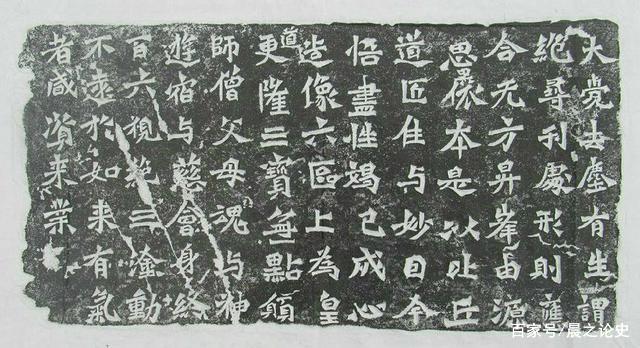 大覺去塵有生謂
絕尋刊處形則
合无方昇峯由源
思本是以止丘
道匠住与妙因今
悟盡性竭已成心
造像六區上為皇
道更隆三寶無點願
師僧父母魂与神
遊宿与慈會身終
百六視絕三塗動
不遠於如来有氣
者咸資来業
百家号/晨之论史